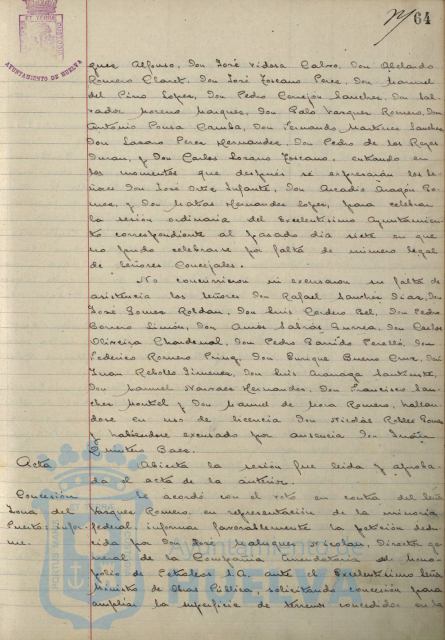 64
AYUNTAMIENTO DE HUELVA
quez Alfonso, Don José Vidosa Calvo, Don Abelardo
Romero Claret, Don José Toscano Perez, Don Manuel
del Pino Lopez, Don Pedro Cerrejon Sanchez, Don Sal-
vador Moreno Marquez, Don Pablo Vazquez Romero, Don
Antonio Pousa Camba, Don Fernando Martinez Sanchez
Don Lazaro Perez Hernandez, Don Pedro de los Reyes
Duran, y Don Carlos Lozano Toscano, entrando en
los momentos que después se expresarán los Se-
ñores Don José Ortiz Infante, Don Arcadio Aragón Go-
mez, y Don Matias Hernandez Lopez, para celebrar
la sesión ordinaria del Excelentísimo Ayuntamien-
to correspondiente al pasado dia siete en que
no pudo celebrarse por falta de número legal
de Señores Concejales.
No concurrieron ni excusaron su falta de
asistencia los señores Don Rafael Sanchez Diaz, Don
José Gomez Roldan, Don Luis Cordero Bel, Don Pedro
Borrero Limón, Don Amos Sabrás Gurrea, Don Carlos
Oliveira Chardenal, Don Pedro Garrido Perelló, Don
Federico Romero Don Enrique Bueno Cruz, Don
Juan Rebollo Jimenez, Don Luis
Don Manuel Narvaez Hernandez, Don Francisco San-
chez Montiel y Don Manuel de Mora Romero, hallan-
dose en uso de licencia Don Nicolás Robles
y habiendose excusado por ausencia Don
Quintero Baez.
Acta Abierta la sesión fue leida y aproba-
da el acta de la anterior.
Concesión Se acordó con el voto en contra del Señor
Zona del Vazquez Romero, en representación de la minoria
Puerto: infor- federal, informar favorablemente la petición dedu-
me. cida por Don José Maluquer Nicolau, Director ge-
neral de la Compañia Arrendataria del Mono-
polio de Petroleos S.A. ante el Excelentísimo Señor
Ministro de Obras Pública, solicitando concesión para
ampliar la superficie de terrenos concedidos en la
Ayuntamiento de
HUELVA